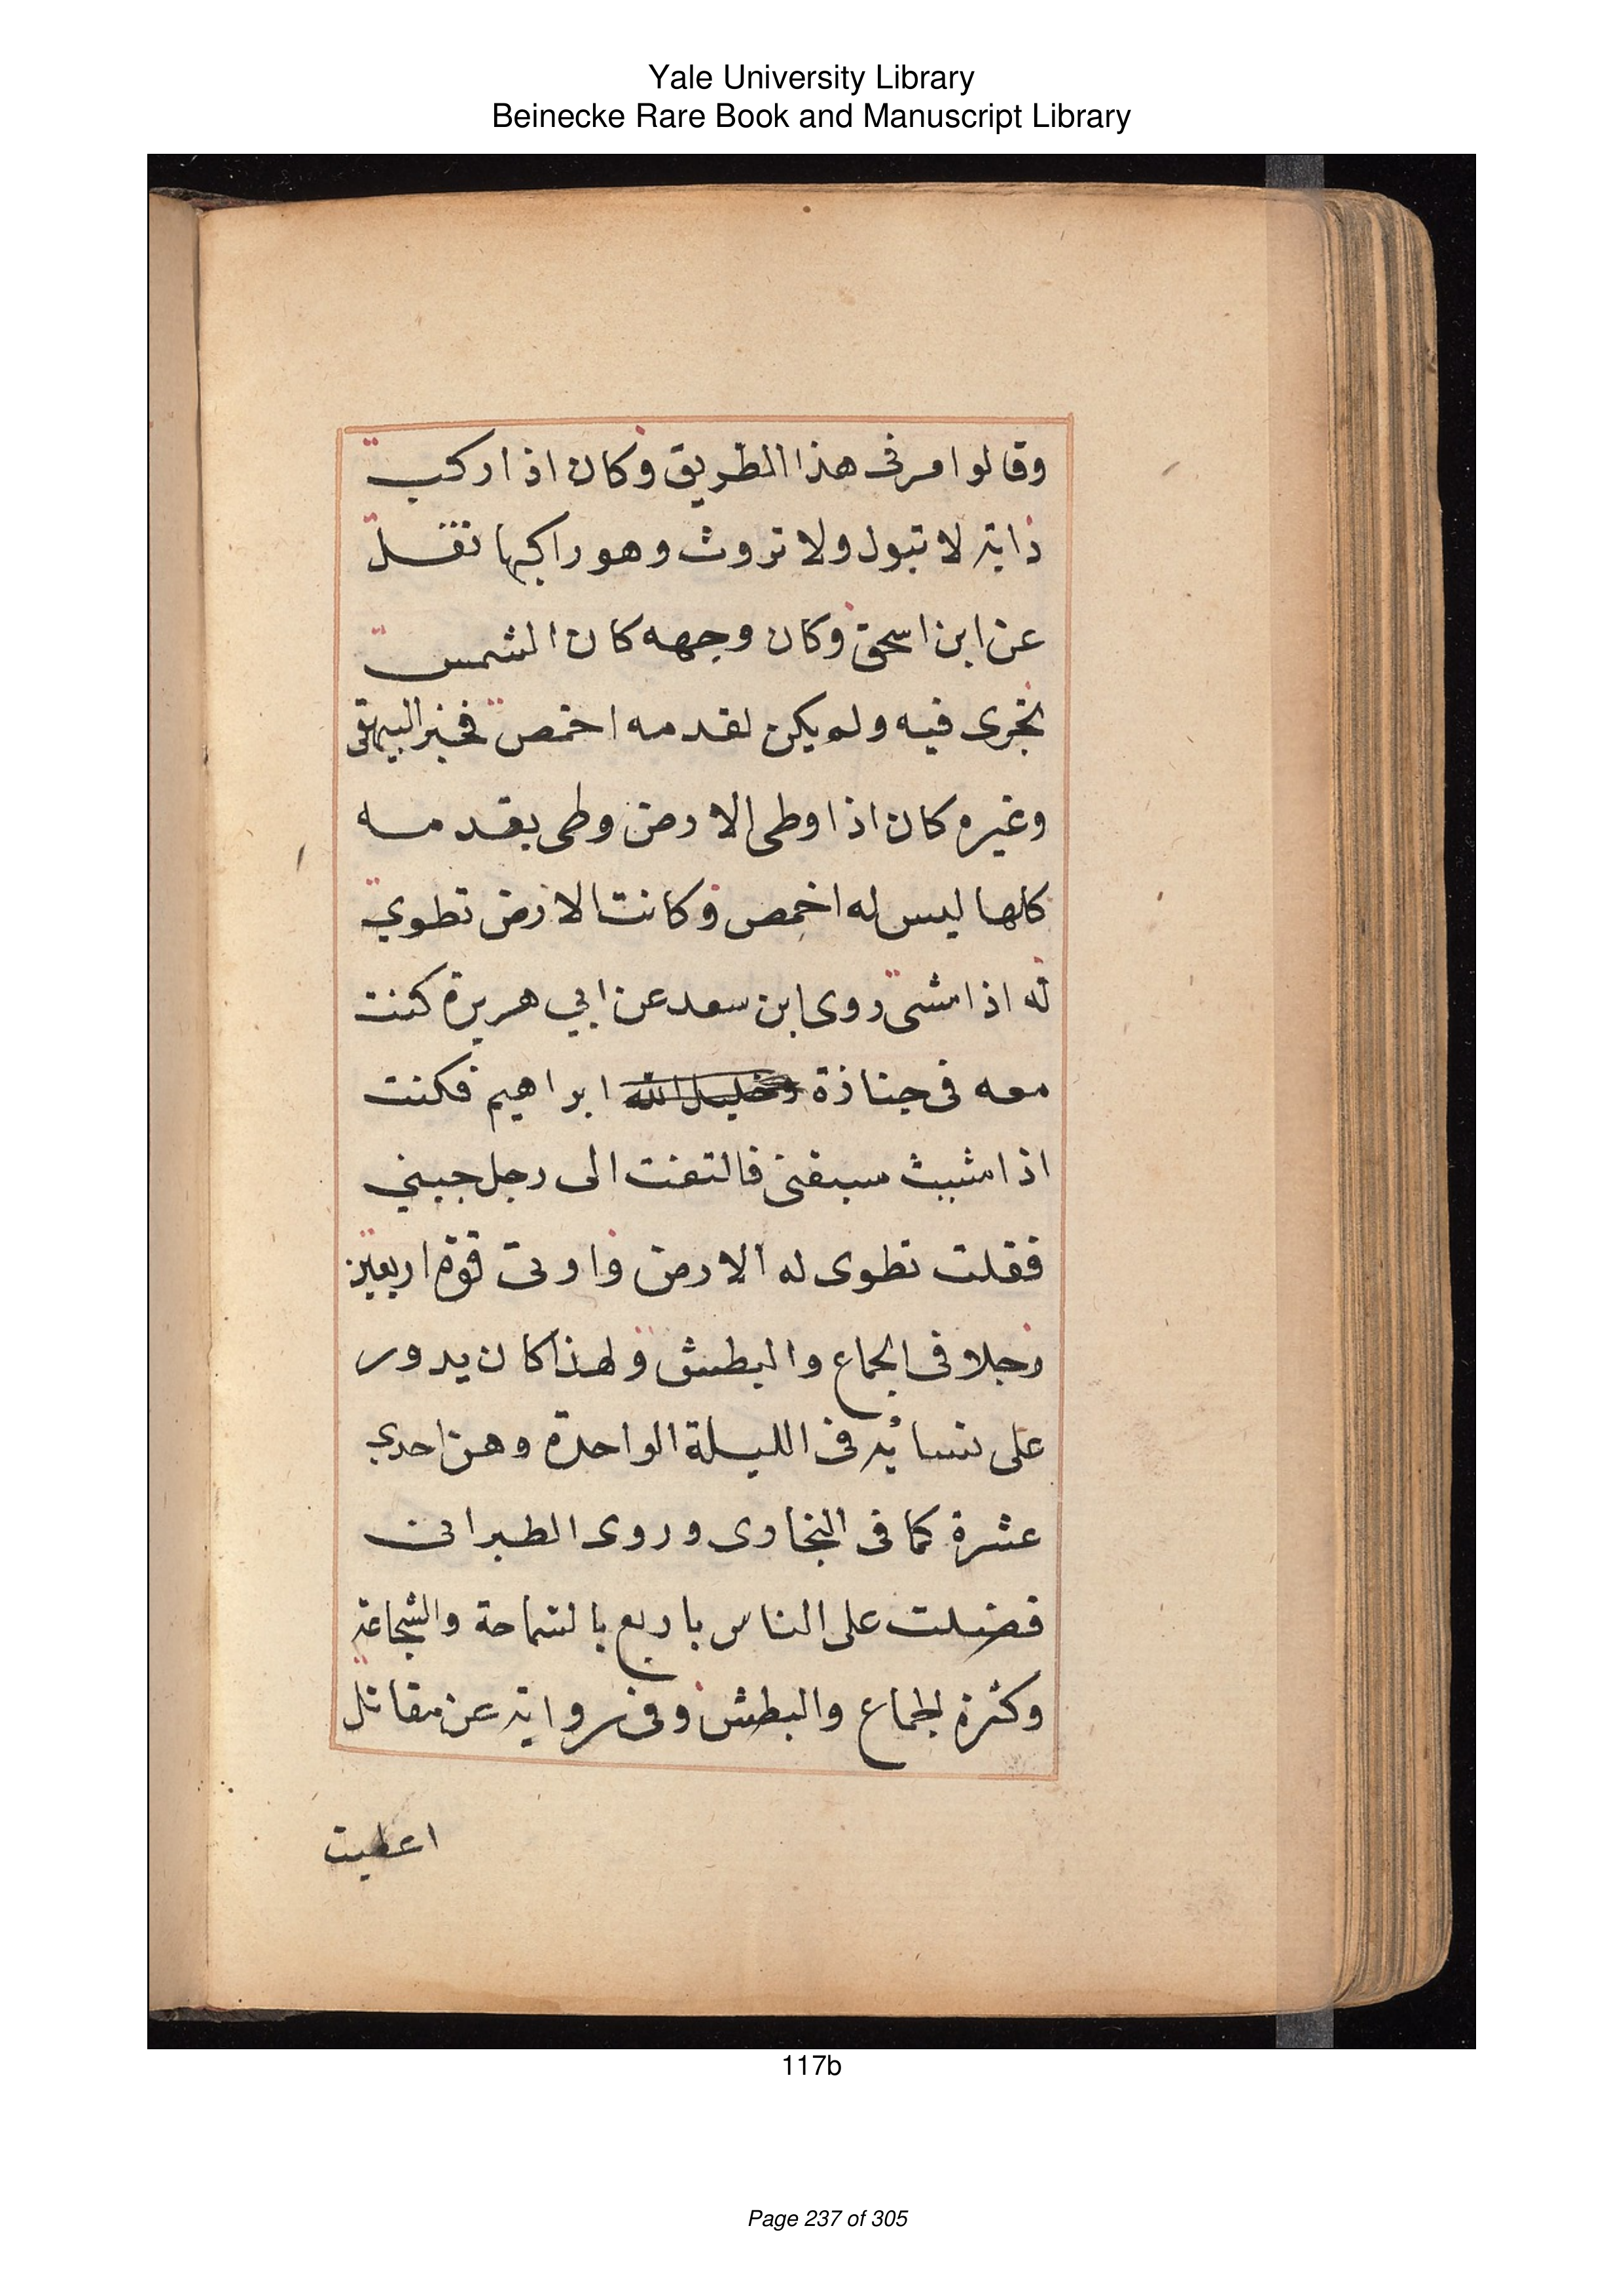 Yale University Library
Beinecke Rare Book and Manuscript Library
وقالوا مر فى هذا الطريق وكان اذا ركب
دابة لا تبول ولا تروث وهو راكبها نقل
عن ابن اسحق وكان وجهه كان الشمس
تجرى فيه ولم يكن لقدمه اخمص فخبر البيهقى
وغيره كان اذا وطى الارض وطى بقدمه
كلها ليس له اخمص وكانت الارض تطوي
له اذا مشى روى ابن سعد عن ابي هريرة كنت
معه فى جنازة وخليل الله ابراهيم فكنت
اذا مشيت سبقنى فالتفت الى رجل جبنبي
فقلت تطوى له الارض واوتى قوة اربعين
رجلا فى الجماع والبطش ولهذا كان يدور
على نسائه فى الليلة الواحدة وهن احدي
عشرة كما فى البخارى وروى الطبرانى
فضلت على الناس باربع بالسماحة والشجاعة
وكثرة الجماع والبطش وفى رواية عن مقاتل
اعطيت
117b
Page 237 of 305